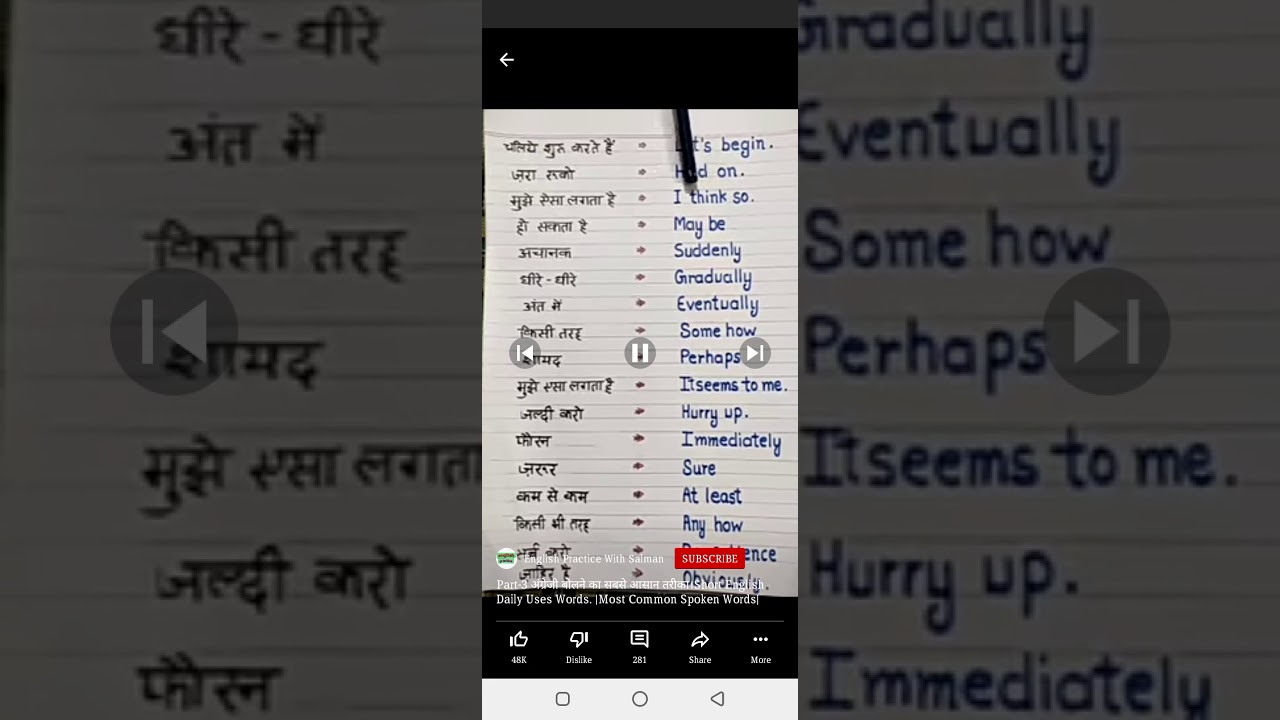 चलिये शुरू करते हैं → Let's begin.
ज़रा रुको → Hold on.
मुझे ऐसा लगता है → I think so.
हो सकता है → May be
अचानक → Suddenly
धीरे - धीरे → Gradually
अंत में → Eventually
किसी तरह → Some how
शायद → Perhaps
मुझे ऐसा लगता है → It seems to me.
जल्दी करो → Hurry up.
फौरन → Immediately
ज़रूर → Sure
कम से कम → At least
किसी भी तरह → Any how
जाहिर है → Obviously.
English Practice With Salman SUBSCRIBE
Part-3 अंग्रेजी बोलने का सबसे आसान तरीका।Short English
Daily Uses Words. |Most Common Spoken Words|
48K Dislike 281 Share More
धीरे - धीरे Gradually
अंत में Eventually
किसी तरह Some how
Perhaps
मुझे ऐसा लगता It seems to me.
जल्दी करो Hurry up.
फौरन Immediately